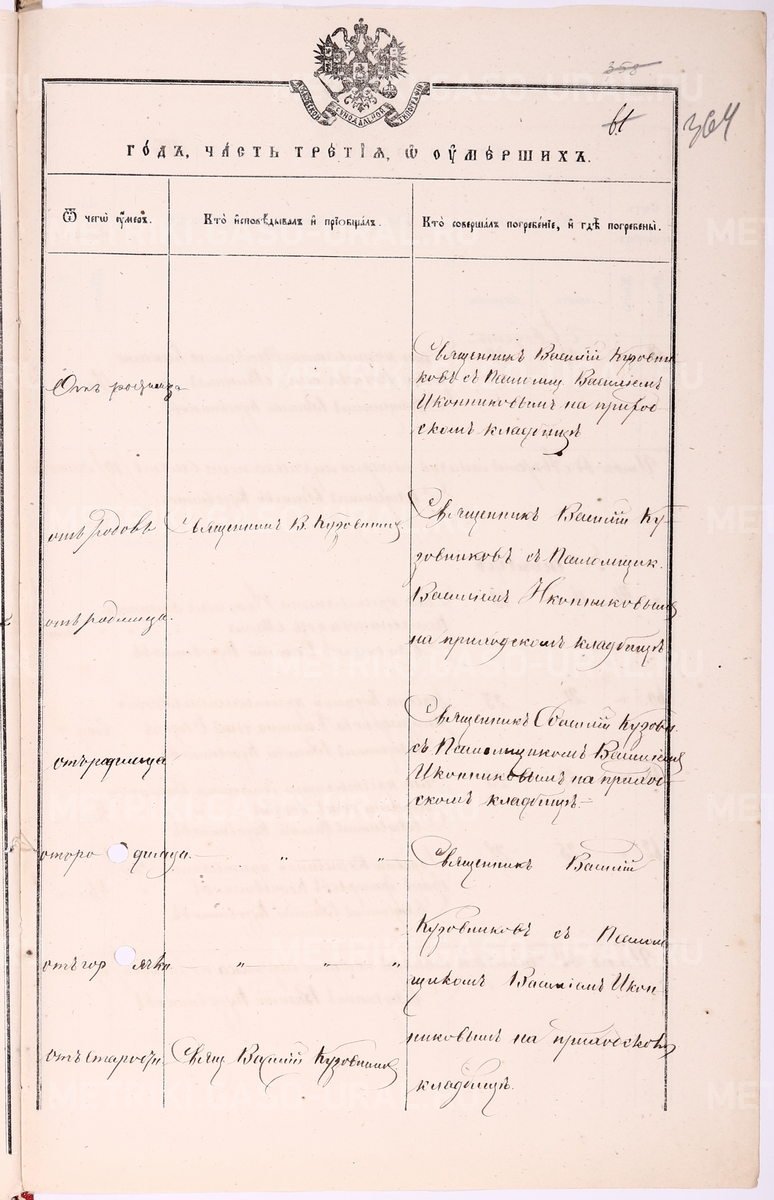 358
61
364
МОСКОВСКОЙ СѴНОДАЛЬНОЙ ТИПОГРАФІИ
ГО́ДЪ, ЧА́СТЬ ТРЕ́ТІѦ, Ѡ ОУМЕ́РШИХЪ.
Ѿ чегѡ̀ ᲂу҆́меръ.
Кто̀ и҆сповѣ́дывалъ и҆ прїобща́лъ.
Кто̀ соверша́лъ погребе́нїе, и҆ гдѣ̀ погребены̀.
Отъ родимца
Священникъ Василій Кузовни
ковъ съ Псаломщ. Василіемъ
Иконниковымъ на приход-
скомъ кладбищѣ
отъ родовъ
Священникъ В. Кузовник.
Священникъ Василій Ку-
зовниковъ съ Псаломщик.
Василіемъ Иконниковымъ
на приходскомъ кладбищѣ
отъ родимца.
отъ родимца
Священникъ Василій Кузовн.
съ Псаломщикомъ Василіемъ
Иконниковымъ на приход-
скомъ кладбищѣ-
отъ родимца. — " " —
Священникъ Василій
Кузовниковъ съ Псалом
щикомъ Василіемъ Икон
никовымъ на приходском
кладбищѣ.
отъ горячки — " — " — "
отъ старости.
Свящ Василій Кузовников